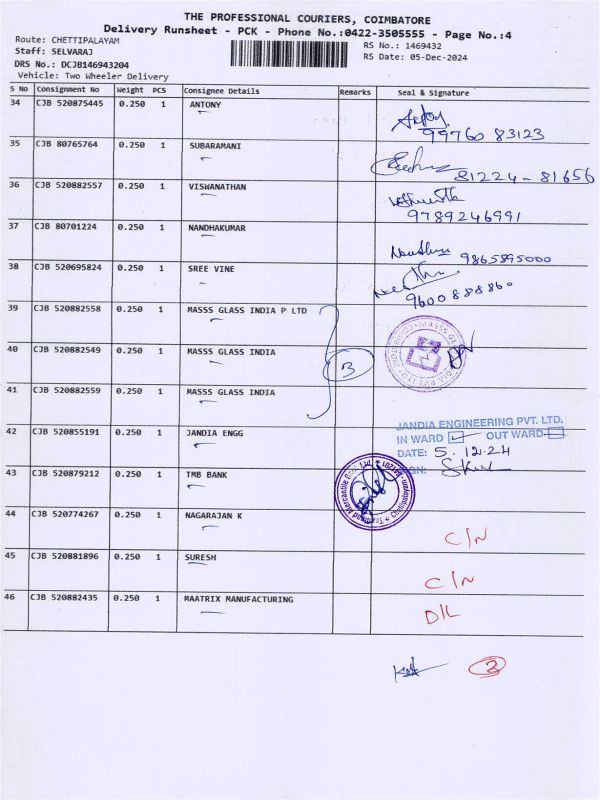 THE PROFESSIONAL COURIERS, COIMBATORE
Delivery Runsheet - PCK - Phone No.:0422-3505555 - Page No.:4
Route: CHETTIPALAYAM
RS No.: 1469432
Staff: SELVARAJ
RS Date: 05-Dec-2024
DRS No.: DCJB146943204
Vehicle: Two Wheeler Delivery
S No Consignment No Weight PCS Consignee Details Remarks Seal & Signature
34 CJB 520875445 0.250 1 ANTONY
99760 83123
35 CJB 80765764 0.250 1 SUBARAMANI
81224-81656
36 CJB 520882557 0.250 1 VISWANATHAN
9789246991
37 CJB 80701224 0.250 1 NANDHAKUMAR
9865895000
38 CJB 520695824 0.250 1 SREE VINE
9600888860
39 CJB 520882558 0.250 1 MASSS GLASS INDIA P LTD
40 CJB 520882549 0.250 1 MASSS GLASS INDIA
41 CJB 520882559 0.250 1 MASSS GLASS INDIA
42 CJB 520855191 0.250 1 JANDIA ENGG
JANDIA ENGINEERING PVT. LTD.
IN WARD OUT WARD
DATE: 5.12.24
43 CJB 520879212 0.250 1 TMB BANK
Tamilnad Mercantile Bank Ltd.
44 CJB 520774267 0.250 1 NAGARAJAN K
C/N
45 CJB 520881896 0.250 1 SURESH
C/N
46 CJB 520882435 0.250 1 MAATRIX MANUFACTURING
D/L